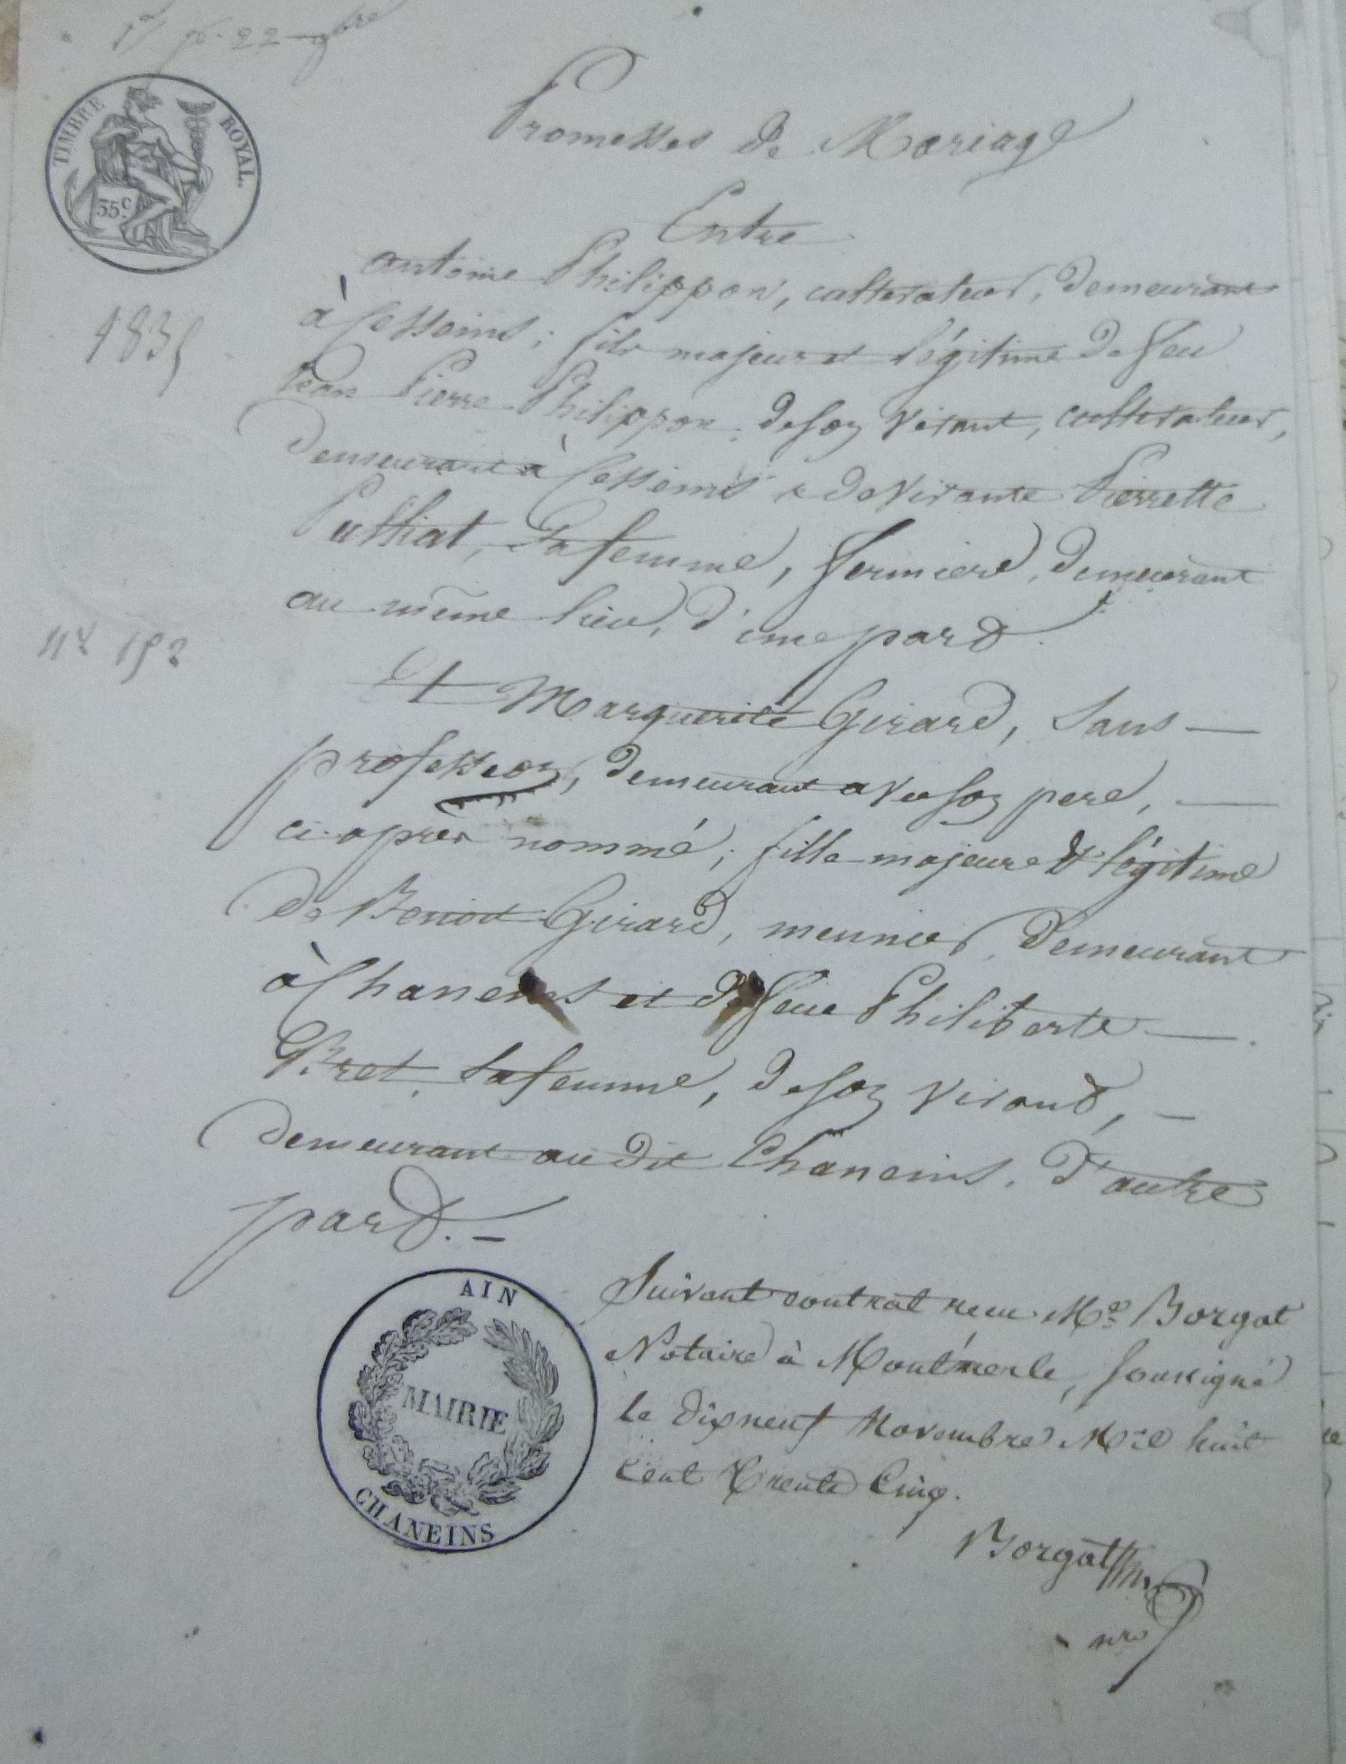 1re p. 22 9bre
TIMBRE ROYAL.
35c
Promesses de Mariage
Entre
antoine Philippon, cultivateur, demeurant
1835
à Cesseins; fils majeur et légitime de feu
Jean Pierre Philippon, de son vivant, cultivateur,
demeurant à Cesseins & de vivante Pierrette
Pulliat, Sa femme, fermiere, demeurant
au même lieu, d'une part
Et Marguerite Girard, Sans
profession, demeurant avec son pere,
ci-après nommé; fille majeure & légitime
de Benoit Girard, meunier, demeurant
à Chaneins et de feue Philiberte
Bret, Sa femme, de son vivant,
demeurant audit Chaneins, d'autre
part.
Suivant contrat recu Me Borgat
Notaire à Montmerle, soussigné
le dixneuf Novembre Mil huit
Cent Trente Cinq.
Borgat
nre
AIN
MAIRIE
CHANEINS